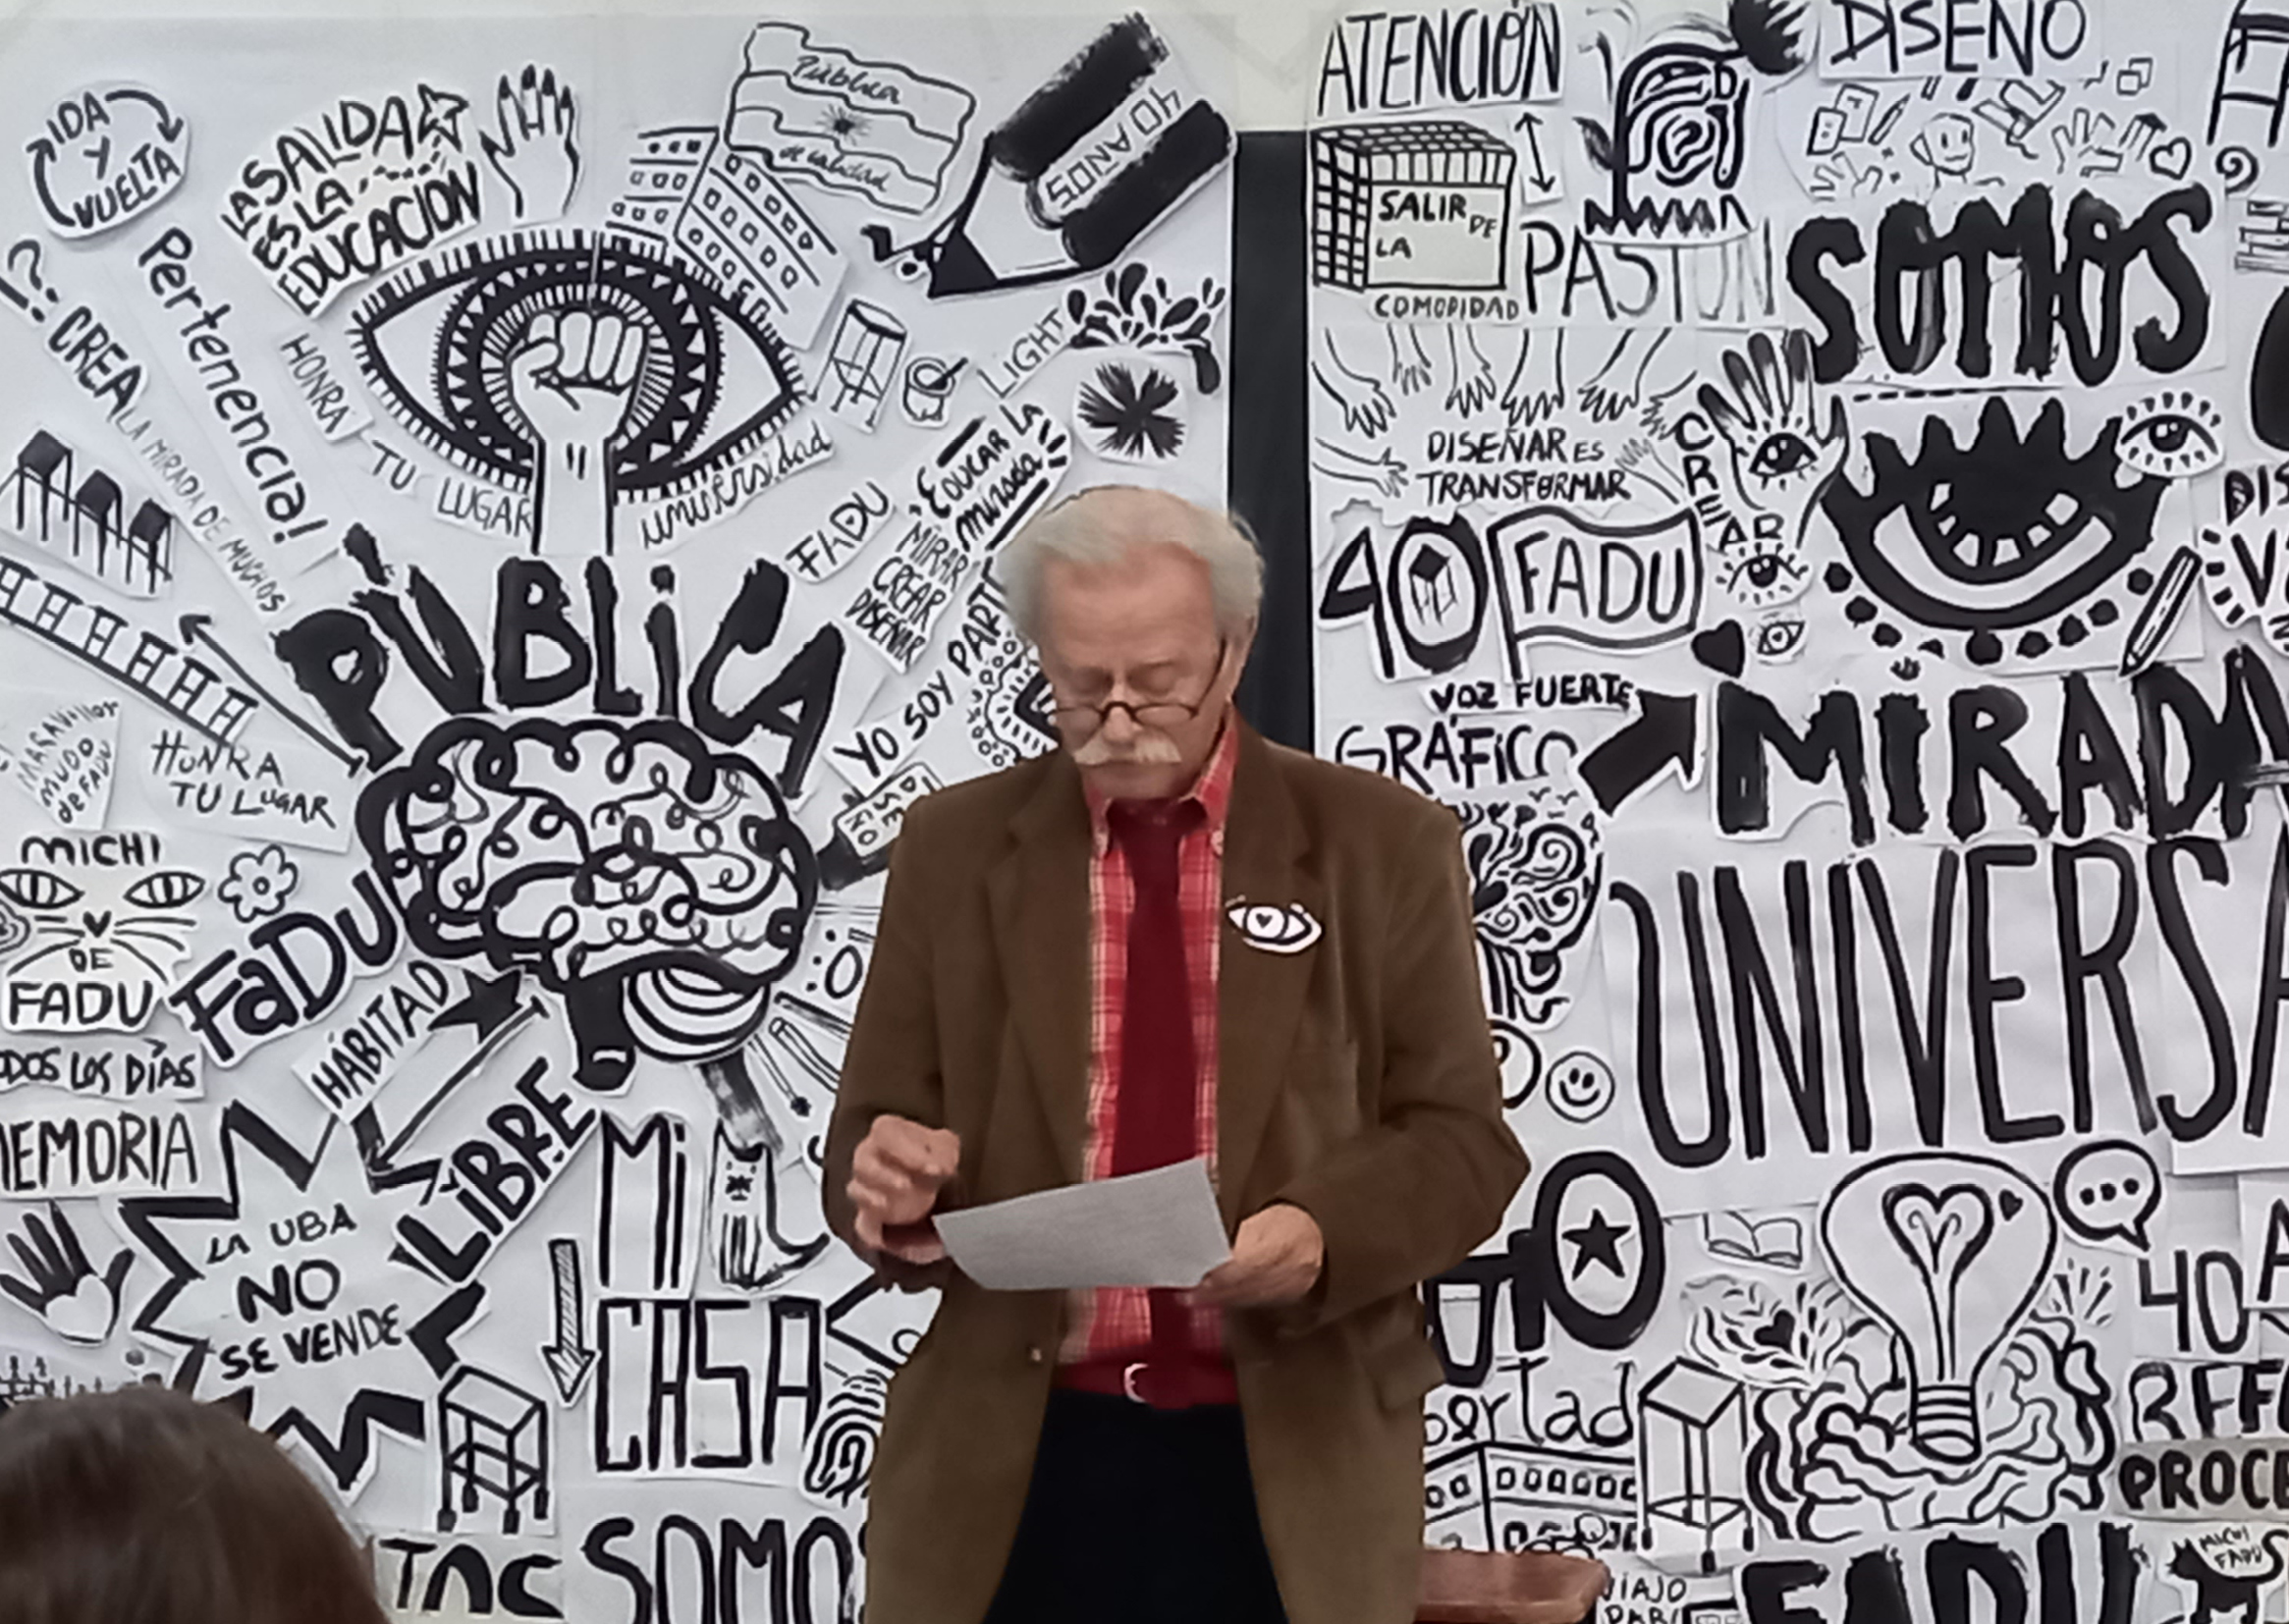 IDA
Y
VUELTA
LA SALIDA
ES LA
EDUCACIÓN
Pública
de calidad
40 AÑOS
Pertenencia!
!?
CREA
LA MIRADA DE MUCHOS
HONRÁ
TU LUGAR
universidad
LIGHT
EDUCAR LA
mirada
FADU
MIRAR
CREAR
DISEÑAR
YO SOY PARTE
PÚBLICA
MUDO
de FADU
HONRA
TU LUGAR
MICHI
DE
FADU
FaDU
HÁBITAD
ODOS LOS DÍAS
MEMORIA
LIBRE
LA UBA
NO
SE VENDE
Mi
CASA
SOMOS
ATENCIÓN
SALIR DE
LA
COMODIDAD
PASIÓN
DISEÑO
SOMOS
DISEÑAR ES
TRANSFORMAR
CREAR
40
FADU
VOZ FUERTE
GRÁFICO
MIRADA
UNIVERSA
bertad
40 A
REF
PROCE
VIAJO
PARA
FADU
MICHI
FADU